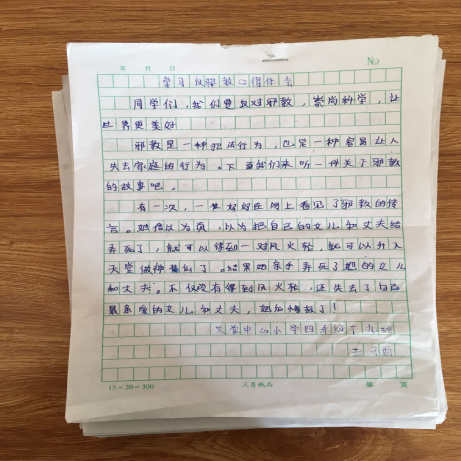 年 月 日 No
学习反邪教心得体会
同学们，我们要反对邪教，崇尚科学，让
世界更美好
邪教是一种犯法行为，也是一种容易让人
失去家庭的行为。下面我们来听一件关于邪教
的故事吧。
有一次，一名妇女在网上看见了邪教的传
言。她信以为真，以为把自己的女儿和丈夫给
弄死了，就可以得到一对风火轮，就可以升入
天堂做神仙了。结果她亲手弄死了她的女儿
和丈夫。不仅没有得到风火轮，还失去了自己
最亲爱的女儿和丈夫，她后悔极了！
中心小学四年级
15×20=300 三育纸品 第 页